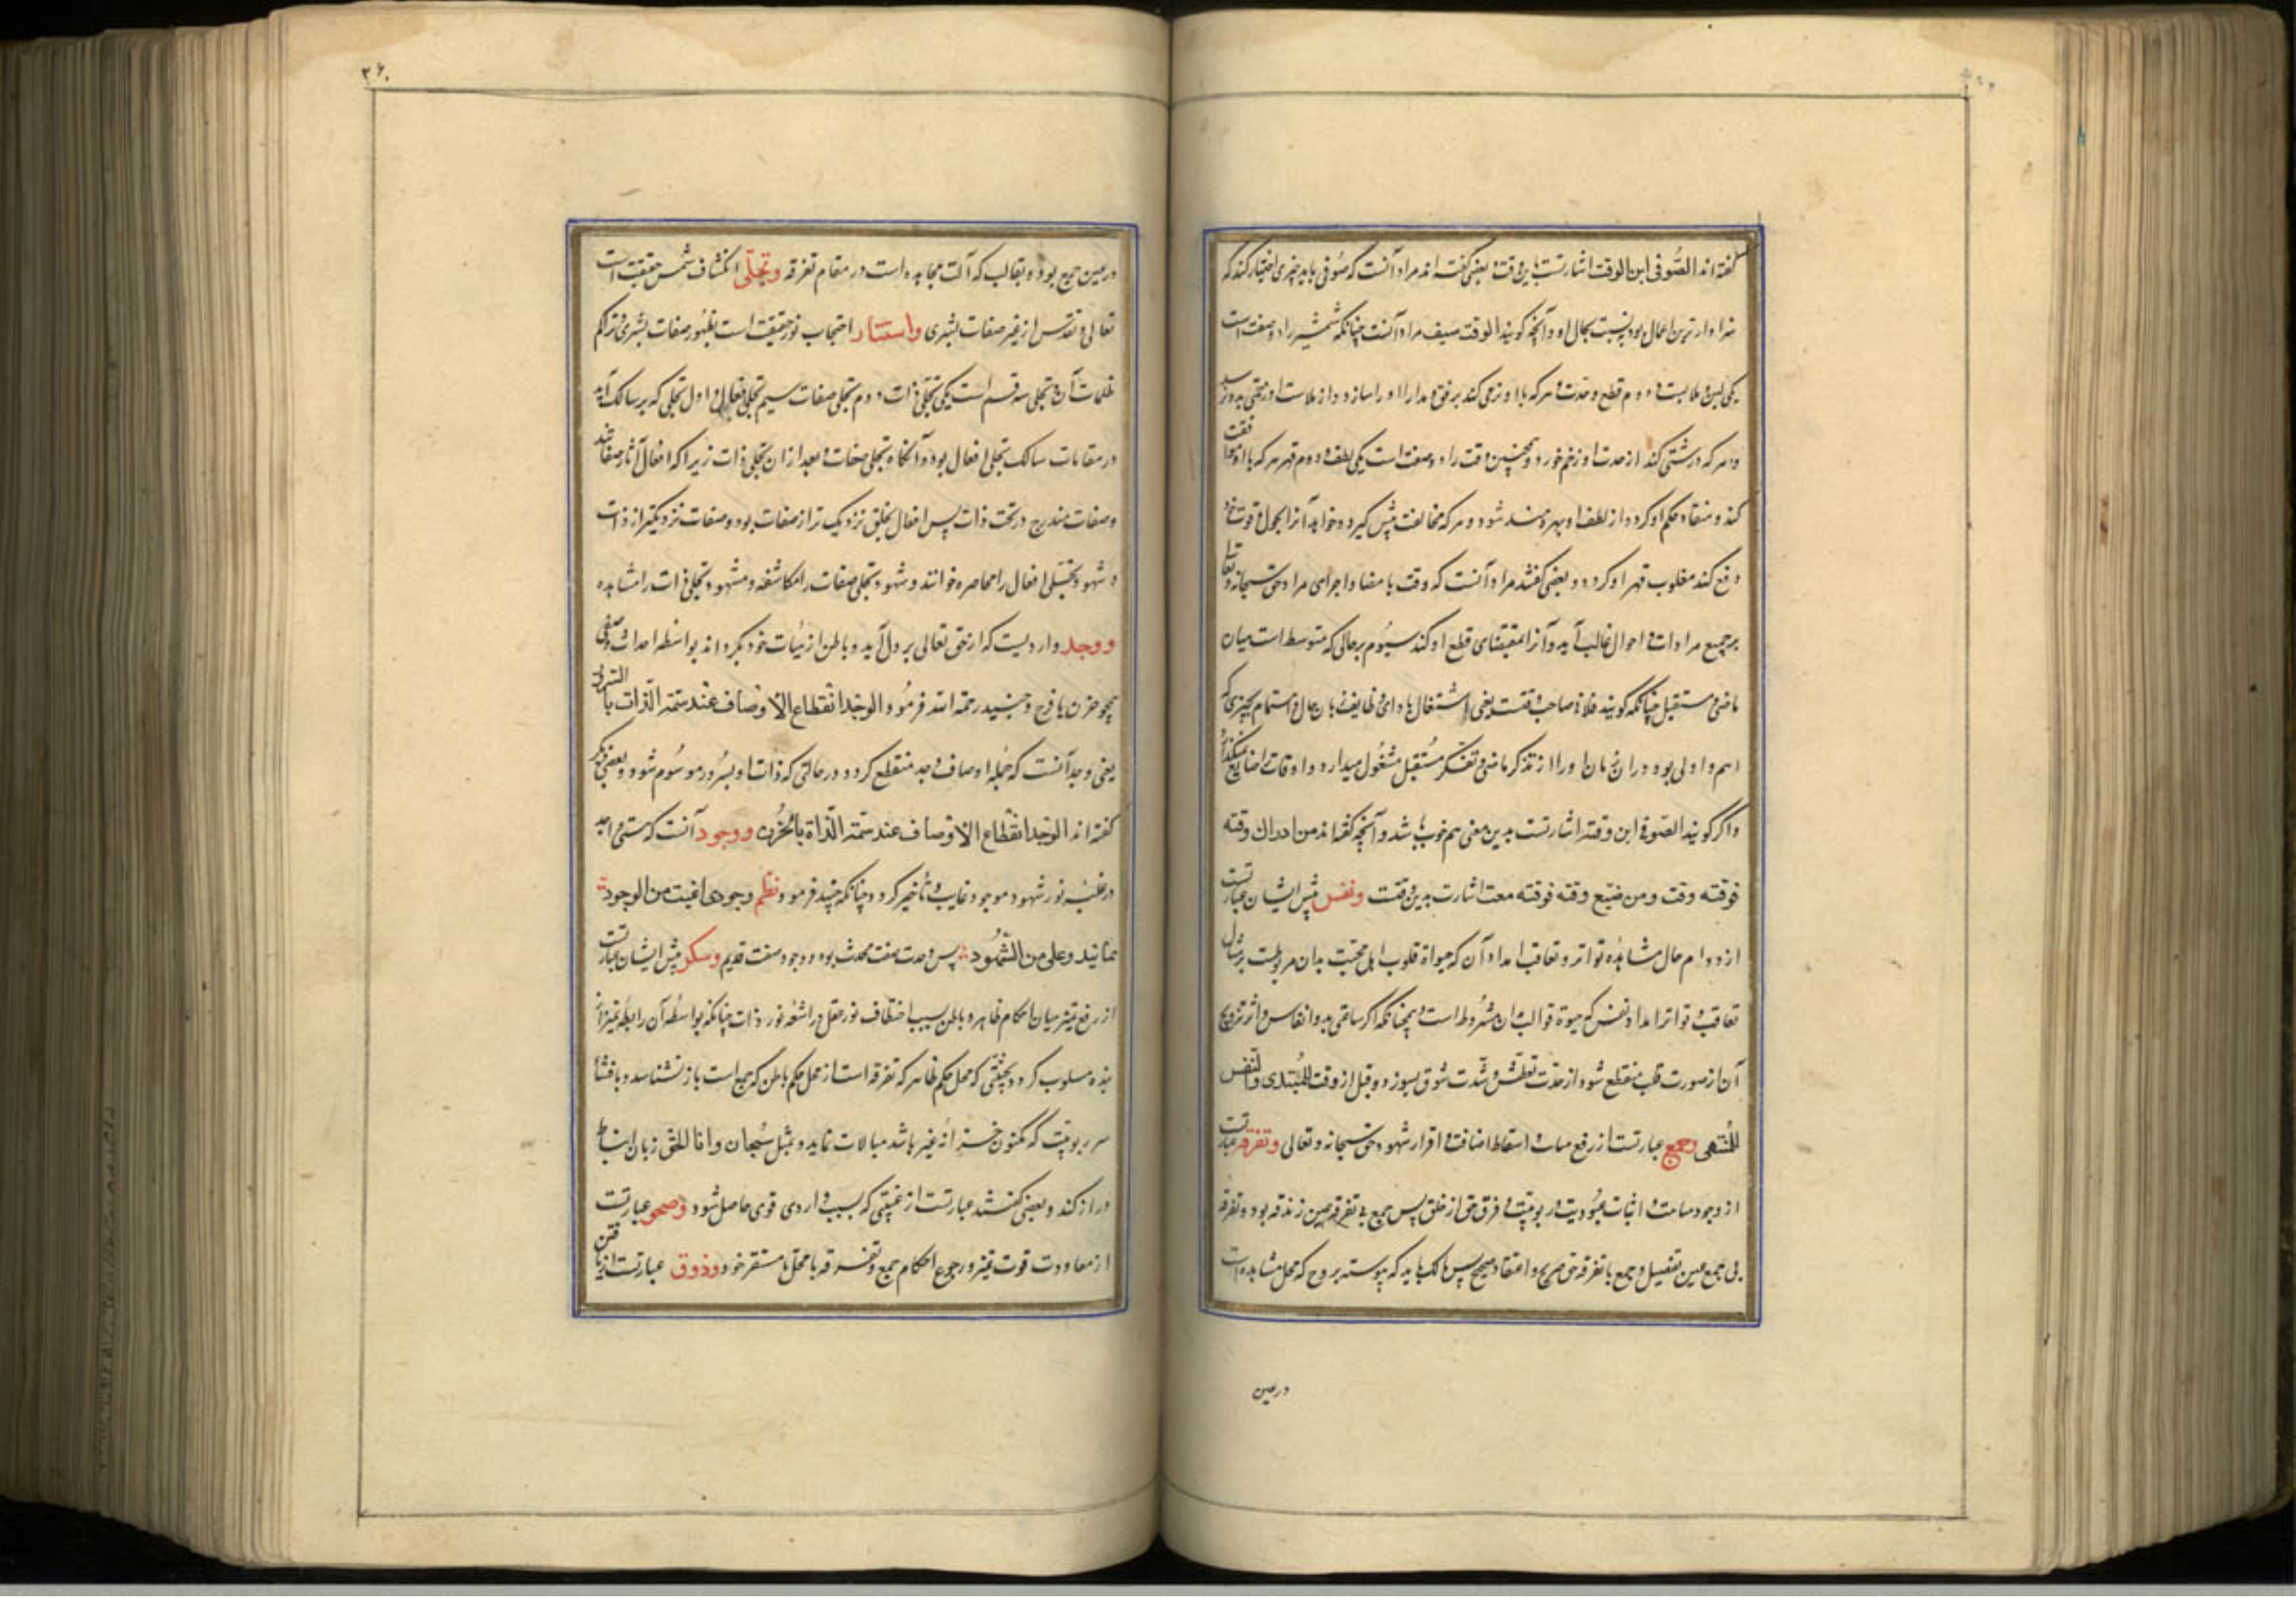 گفته اند الصُّوفی ابن الوقت اشارتست باین وقت و بعضی گفته اند مراد آنست که صُوفی باید چیزی اختیار کند که
سزاوارترین اعمال بود نسبت بحال او و آنچه گویند الوقت سیف مراد آنست چنانکه شمشیر را دو صفت است
یکی لین و ملابست و دوم قطع و حدت و هرکه با او نرمی کند برفق و مدارا او را سازد و از ملاست او رحمتی بدو رسد
و هر که درشتی کند از حدت او زخم خورد و همچنین وقت را دو صفت است یکی لطف و دوم قهر هر که با او موافقت
کند و منقاد حکم او گردد از لطف او بهره مند شود و هر که مخالفت پیش گیرد و خواهد آنرا بحول و قوت خود
دفع کند مغلوب قهر او گردد و بعضی گفتند مراد آنست که وقت بامضا و اجرای مراد حق سبحانه و تعالی
بر جمیع مرادات و احوال غالب آید و آنرا بمقتضای قطع او کند سیُوم بر حالی که متوسط است میان
ماضی و مستقبل چنانکه گویند فلان صاحب وقتست یعنی اشتغال با دای وظایف زمان حال و اهتمام بچیزی که
اهم و اولی بود دران زمان او را از تذکر ماضی و تفکّر مُستقبل مشغُول میدارد و اوقات ضایع نمیگذارد
و اگر گویند الصّوفی ابن وقته اشارتست بدین معنی هم خوب باشد و آنچه گفته اند من ادرك وقته
فوقته وقت ومن ضیّع وقته فوقته مقت اشارت بدین وقتست ونفس پیش ایشان عبارتست
از دوام حال مشاهده و تواتر و تعاقب امداد آن که حیواة قلوب اهل محبت بدان مربوطست بر مثال
تعاقب و تواتر امداد نفس که حیوة قوالب بدان مشرُوط است و همچنانکه اگر ساعتی مدد انفاس و اثر ترویح
آن از صورت قلب منقطع شود از حدّت تعطّش و شدّت شوق بسوزد و قیل الوقت للمُبتدی والنّفس
للمُنتهی وجمع عبارتست از رفع مباینت و اسقاط اضافت و اقرار شهود حق سبحانه و تعالی وتفرقه عبارتست
از وجود مباینت و اثبات عبُودیت و ربوبیّت و فرق حق از خلق پس جمع بی تفرقه عین زندقه بود و تفرقه
بی جمع عین تعطیل و جمع با تفرقه حق صریح و اعتقاد صحیح پس سالک باید که پیوسته بروح که محل مشاهده است
درعین
۳۶۰
درعین جمع بوده و بقالب که آلت مجاهده است در مقام تفرقه وتجلّی انکشاف شمس حقیقت است
تعالی و تقدّس از غیر صفات بشری واستتار احتجاب نور حقیقت است بظهُور صفات بشری و تراکم
ظلمات آن و تجلی سه قسم است یکی تجلّی ذات دوم تجلی صفات سیم تجلی فعل و اول تجلی که بر سالک آید
در مقامات سالک تجلی افعال بود و آنکاه تجلی صفات و بعد ازان تجلی ذات زیرا که افعال آثار صفاتند
و صفات مندرج در تحت ذات پس افعال بخلق نزدیک تر از صفات بود و صفات نزدیکتر از ذات
و شهود تجلی افعال را محاصره خوانند و شهود تجلی صفات را مکاشفه و مشهود تجلی ذات را مشاهده
ووجد وارد یست که از حق تعالی بر دل آید و باطن از هیئات خود بگرداند بواسطه احداث وصفی
همچو حزن یا فرح و جنید رحمة الله فرمُود الوجد انقطاع الاوصاف عند سمة الذّات بالسّرور
یعنی وجد آنست که جُمله اوصاف واجد منقطع گردد درحالتی که ذات او بسُرور موسُوم شود و بعضی دیگر
گفته اند الوجد انقطاع الاوصاف عند سمة الذّاة بالحُزن ووجود آنست که هستی واجد
درغلبه نور شهود موجود غایب و ناچیز گردد چنانکه جنید فرمود نظم وجودی اغیب من الوجود
بما یبد و علی من الشّهُود پس وجد صفت محدث بود و وجود صفت قدیم وسکر پیش ایشان عبارتست
از رفع تمیز میان احکام ظاهر و باطن بسبب اختطاف نور عقل در اشعّه نور ذات چنانکه بواسطه آن رابطه تمیز از
بنده مسلوب گردد بحیثیتی که محل حکم ظاهر که تفرقه است از محل حکم باطن که جمع است باز نشناسد و بافشا
سر ربوبیّت که مکنون خزانه غیر باشد مبالات ننماید و بمثل سُبحان وانا الحق زبان انبساط
دراز کند و بعضی گفتند عبارتست از غیبتی که بسبب واردی قوی حاصل شود وصحو عبارتست
از معاودت قوت تمیز و رجوع احکام جمع و تفرقه با محل و مستقر خود وذوق عبارتست از یافتن